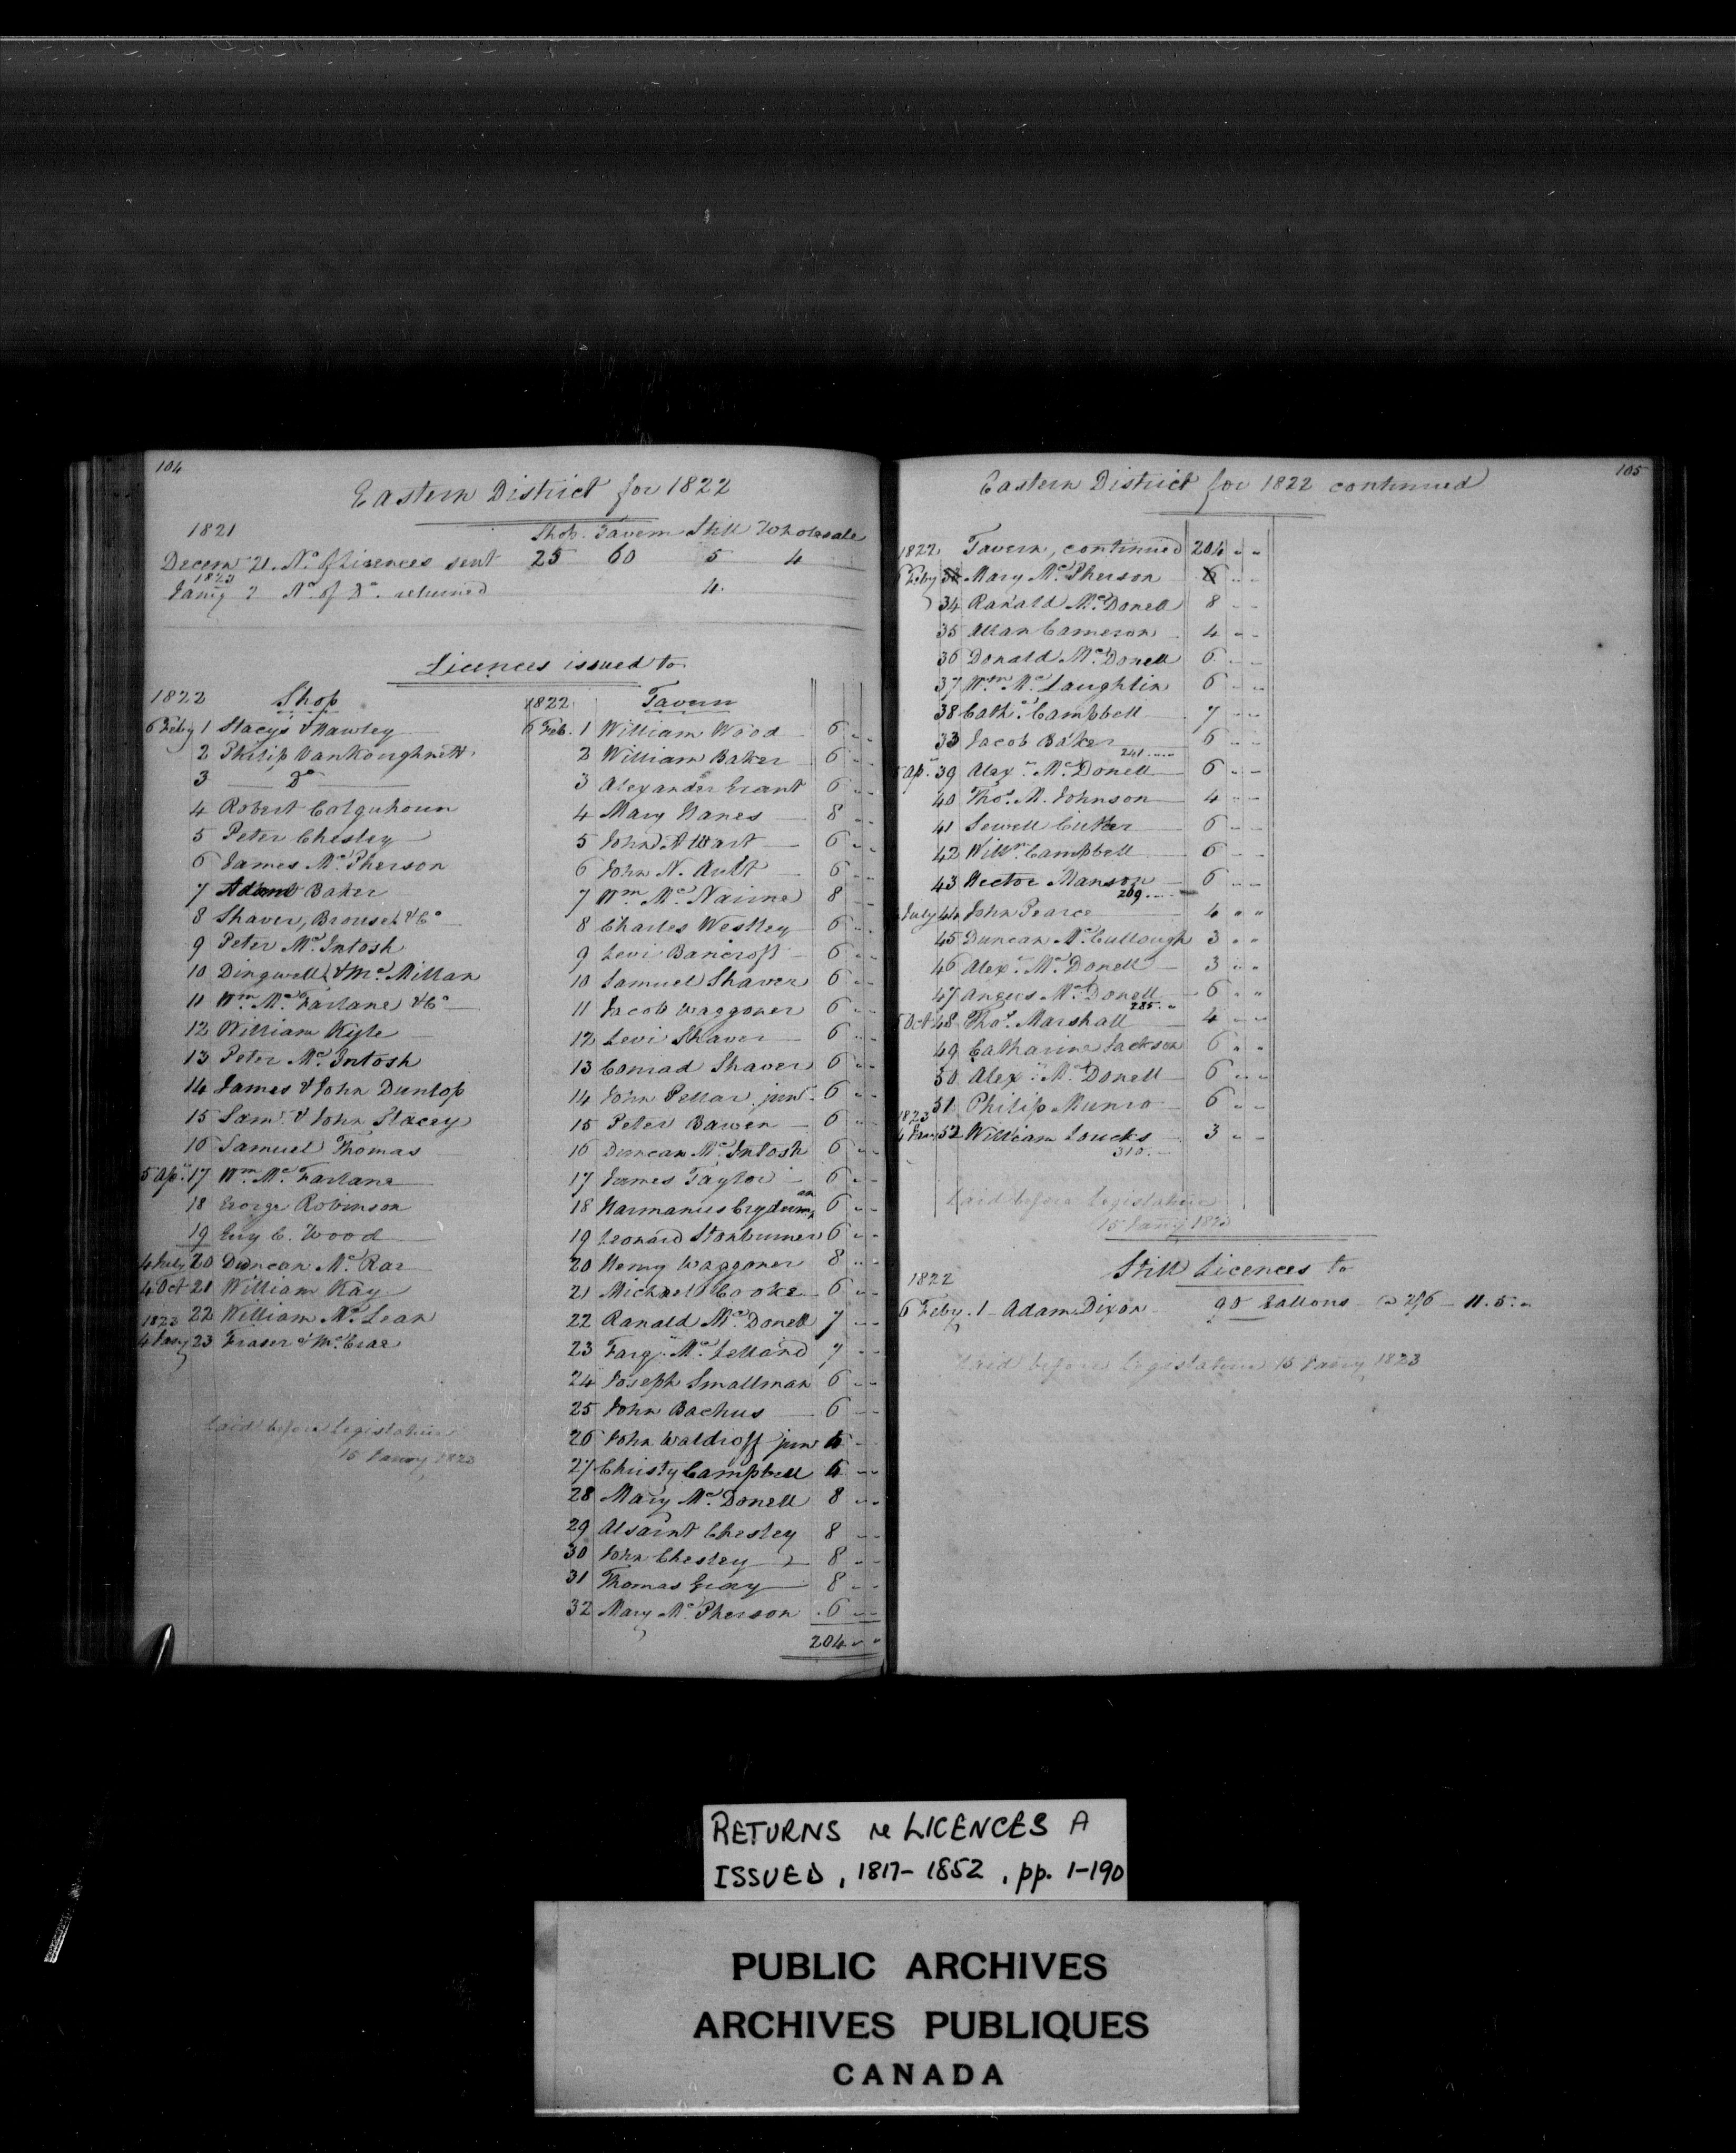 104
Eastern District for 1822
1821
Shop. Tavern Still Wholesale
Decem.r 21. No. of Licences sent 25 60 5 4
1823
Jany 2 No. of Do. returned 4.
Licences issued to
1822 Shop
6 Feby 1 Stacys & Hawley
2 Philip VanKoughnett
3 Do
4 Robert Colquhoun
5 Peter Chesley
6 James Mc.Pherson
7 Adam Baker
8 Shaver, Brouse & Co
9 Peter Mc.Intosh
10 Dingwell & Mc.Millan
11 Wm. Mc.Farlane & Co
12 William Kyle
13 Peter Mc.Intosh
14 James & John Dunlop
15 Saml. & John Stacey
16 Samuel Thomas
5 Apl. 17 Wm. Mc.Farlane
18 George Robinson
19 Guy C. Wood
4 July 20 Duncan Mc.Rae
4 Oct 21 William Kay
22 William Mc.Lean
1823
4 Jany 23 Fraser & Mc.Crae
Laid before Legislature
15 Jany 1823
1822 Tavern
6 Feb. 1 William Wood 6 " "
2 William Baker 6 " "
3 Alexander Grant 6 " "
4 Mary Hanes 8 " "
5 John N Wart 6 " "
6 John N. Ault 6 " "
7 Wm. Mc.Nairne 8 " "
8 Charles Westley 6 " "
9 Levi Bancroft 6 " "
10 Samuel Shaver 6 " "
11 Jacob Waggoner 6 " "
12 Levi Shaver 6 " "
13 Conrad Shaver 6 " "
14 John Pellar junr 6 " "
15 Peter Bawen 6 " "
16 Duncan Mc.Intosh 6 " "
17 James Taylor 6 " "
18 Harmanus Cryderman 6 " "
19 Leonard Stonburner 6 " "
20 Henry Waggoner 8 " "
21 Michael Cooke 6 " "
22 Ranald Mc.Donell 7 " "
23 Farqr. Mc.Lelland 7 " "
24 Joseph Smallman 6 " "
25 John Bachus 6 " "
26 John Waldroff junr 6 " "
27 Christy Campbell 6 " "
28 Mary Mc.Donell 8 " "
29 Alsaint Chesley 8 " "
30 John Chesley 8 " "
31 Thomas Gray 8 " "
32 Mary Mc.Pherson 6 " "
204 " "
105
Eastern District for 1822 continued
1822 Tavern, continued 204 " "
6 Feby Mary Mc.Pherson 6 " "
34 Ranald Mc.Donell 8 " "
35 Allan Cameron 4 " "
36 Donald Mc.Donell 6 " "
37 Wm. Mc.Laughlin 6 " "
38 Cathe. Campbell 7 " "
33 Jacob Baker 6 " "
241
5 Apl. 39 Alexr. Mc.Donell 6 " "
40 Thos. M. Johnson 4 " "
41 Sewell Cutler 6 " "
42 Willm. Campbell 6 " "
43 Hector Manson 6 " "
269
July 44 John Pearce 4 " "
45 Duncan Mc.Cullough 3 " "
46 Alexr. Mc.Donell 3 " "
47 Angus Mc.Donell 6 " "
285
Oct 48 Thos. Marshall 4 " "
49 Catharine Jackson 6 " "
50 Alexr. Mc.Donell 6 " "
51 Philip Munro 6 " "
1823
4 Jany 52 William Loucks 3 " "
310
Laid before Legislature
15 Jany 1823
Still Licences to
1822
6 Feby. 1 Adam Dixon 90 Gallons @ 2/6 11.5."
Laid before Legislature 15 Jany 1823
RETURNS re LICENCES A
ISSUED, 1817-1852, pp. 1-190
PUBLIC ARCHIVES
ARCHIVES PUBLIQUES
CANADA